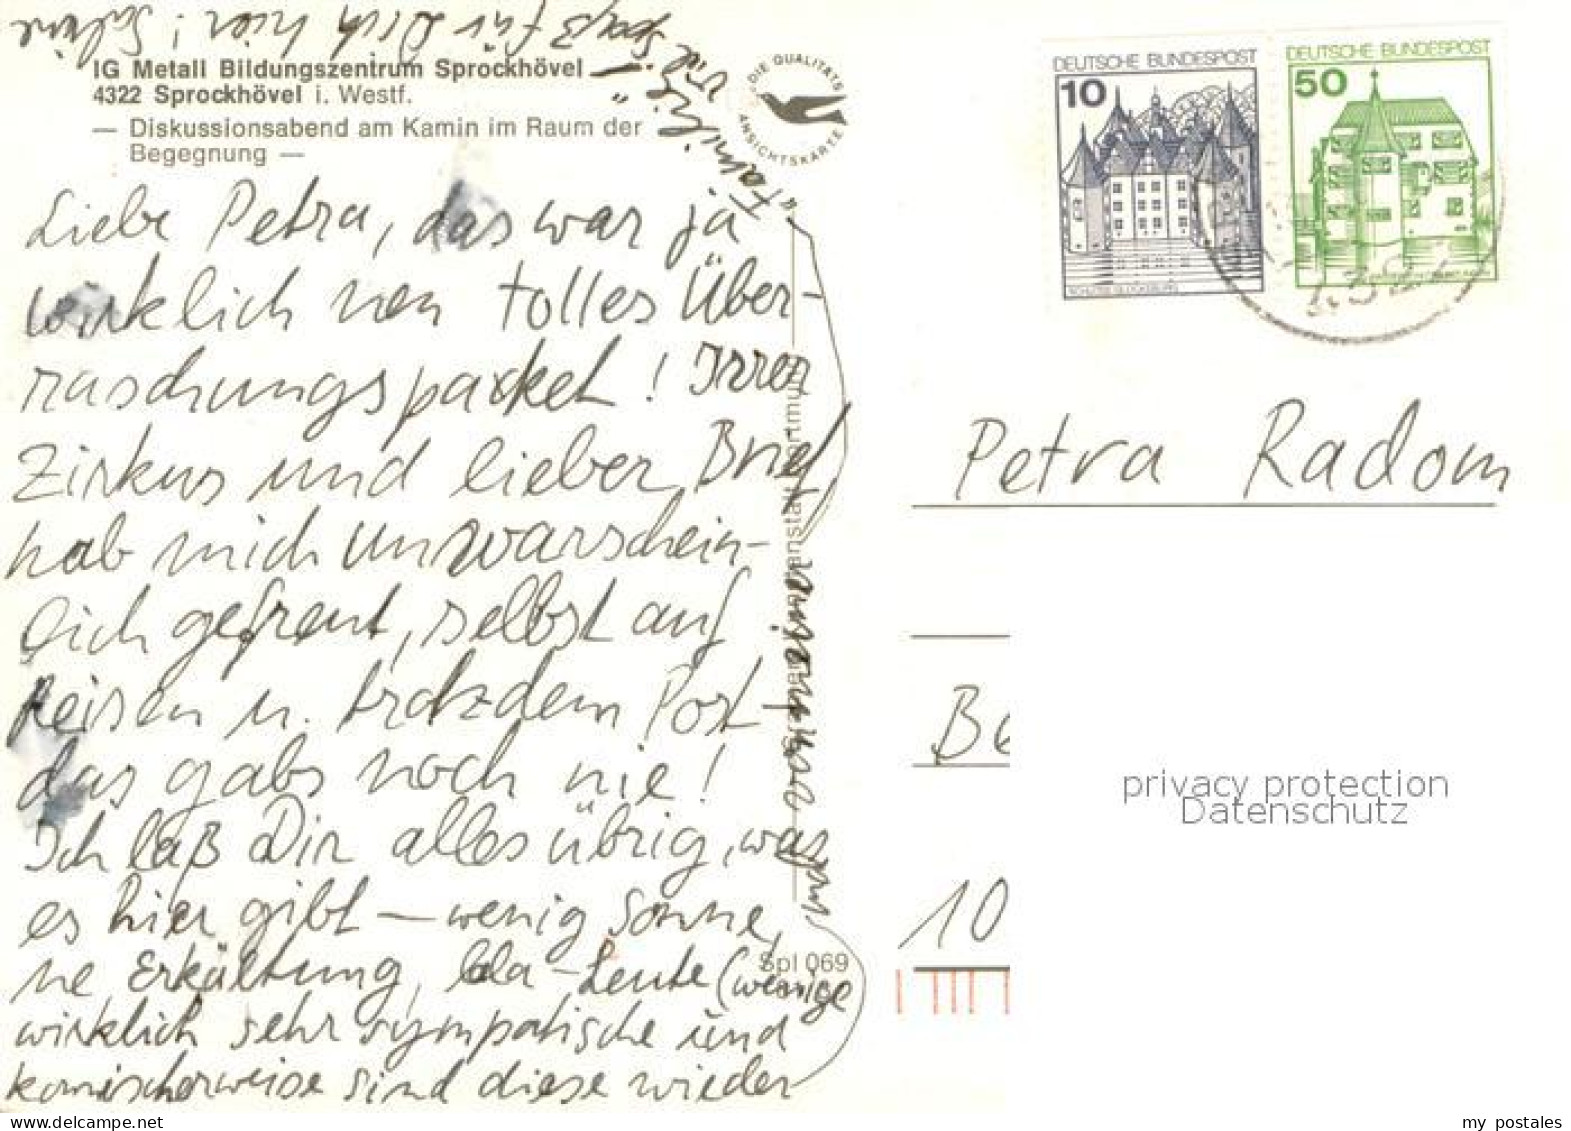 IG Metall Bildungszentrum Sprockhövel
4322 Sprockhövel i. Westf.
— Diskussionsabend am Kamin im Raum der
Begegnung —
Liebe Petra, das war ja
wirklich nen tolles Über-
raschungspaket! Irrer
Zirkus und lieber Brief
hab mich unwarschein-
lich gefreut, selbst auf
Reisen u. trotzdem Post -
das gabs noch nie!
Ich laß Dir alles übrig, was
es hier gibt — wenig Sonne,
ne Erkältung, bla - Leute (wenige
wirklich sehr sympatische und
komischerweise sind diese wieder
"Familie"
Viel
Spaß für Dich hier; Sabine
DIE QUALITÄTS
ANSICHTSKARTE
Spl 069
DEUTSCHE BUNDESPOST
10
SCHLOSS GLÜCKSBURG
DEUTSCHE BUNDESPOST
50
Petra Radom
Be
10
privacy protection
Datenschutz
my postales